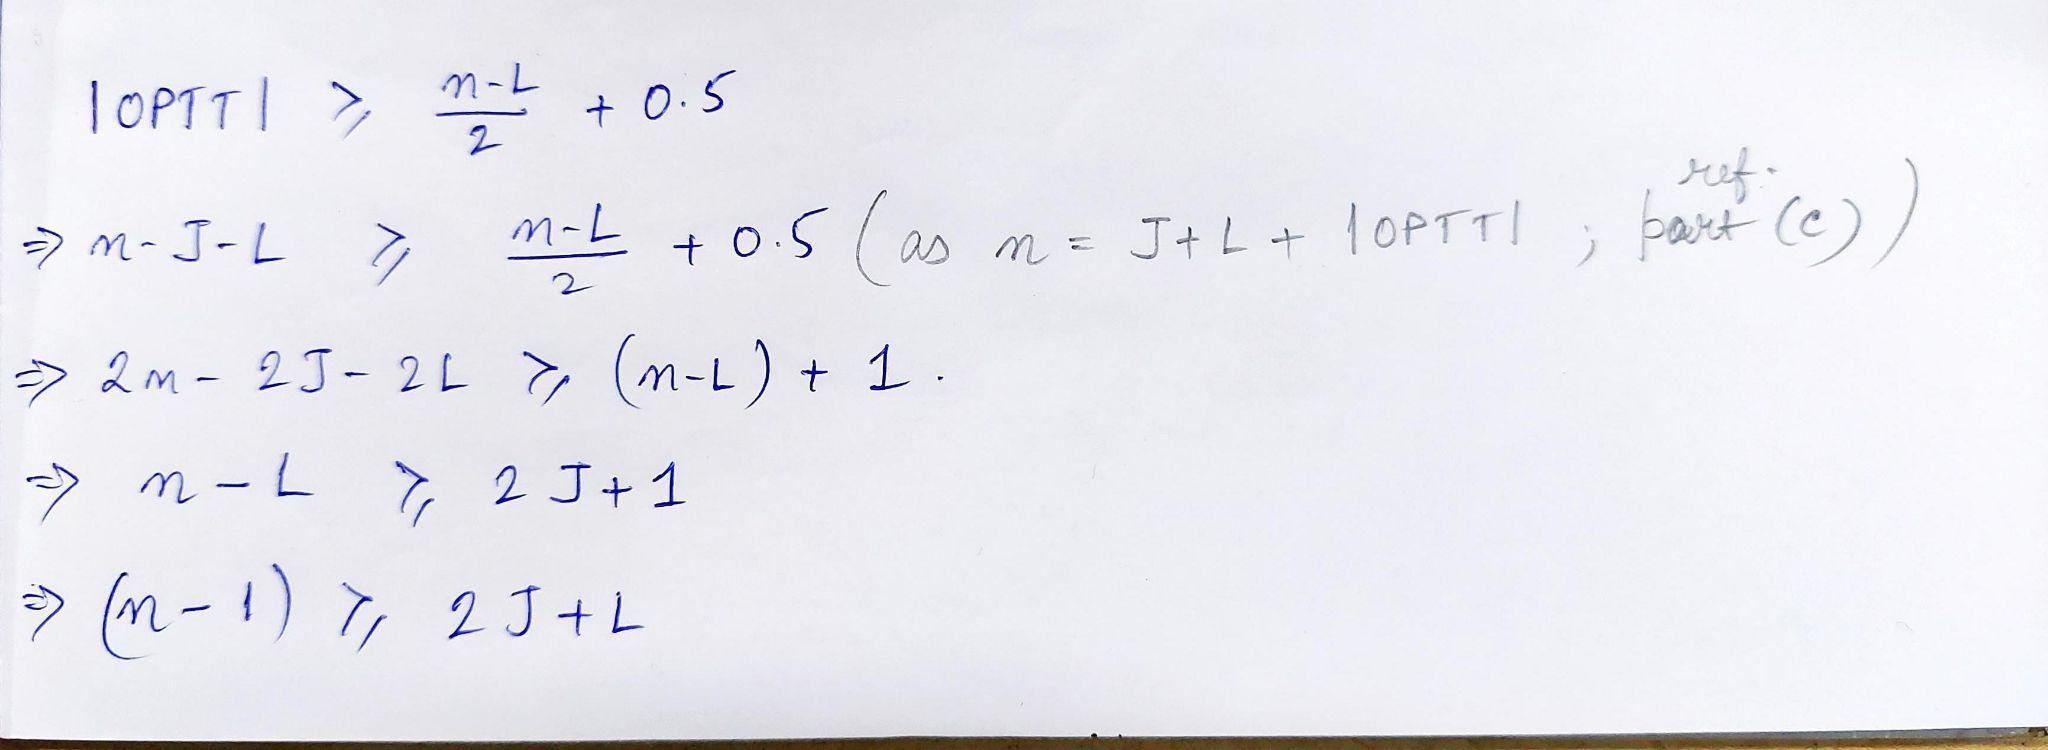 |OPTT| ≥ n-L/2 + 0.5
⇒ n-J-L ≥ n-L/2 + 0.5 (as n = J+L+ |OPTT| ; ref. part (c))
⇒ 2n - 2J - 2L ≥ (n-L) + 1.
⇒ n - L ≥ 2J+1
⇒ (n-1) ≥ 2J+L